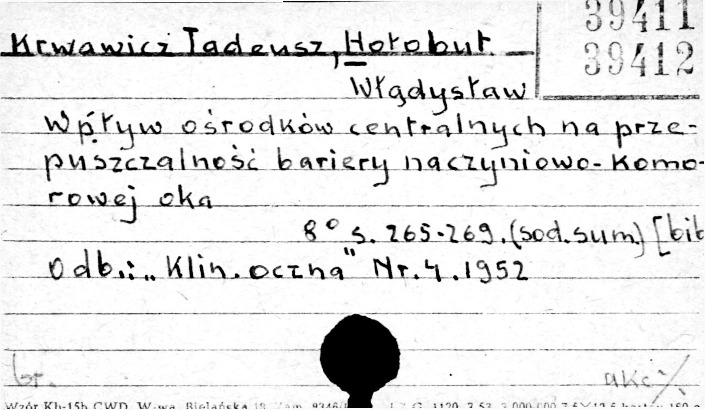 39411
39412
Krwawicz Tadeusz, Hołobut
Władysław
Wpływ ośrodków centralnych na prze-
puszczalność bariery naczyniowo-komo-
rowej oka
8° s. 265-269. (sod. sum.) [bib
Odb.: „Klin. oczna" Nr. 4. 1952
br. akc
Wzór Kh-15b CWD, W-wa, Bielańska